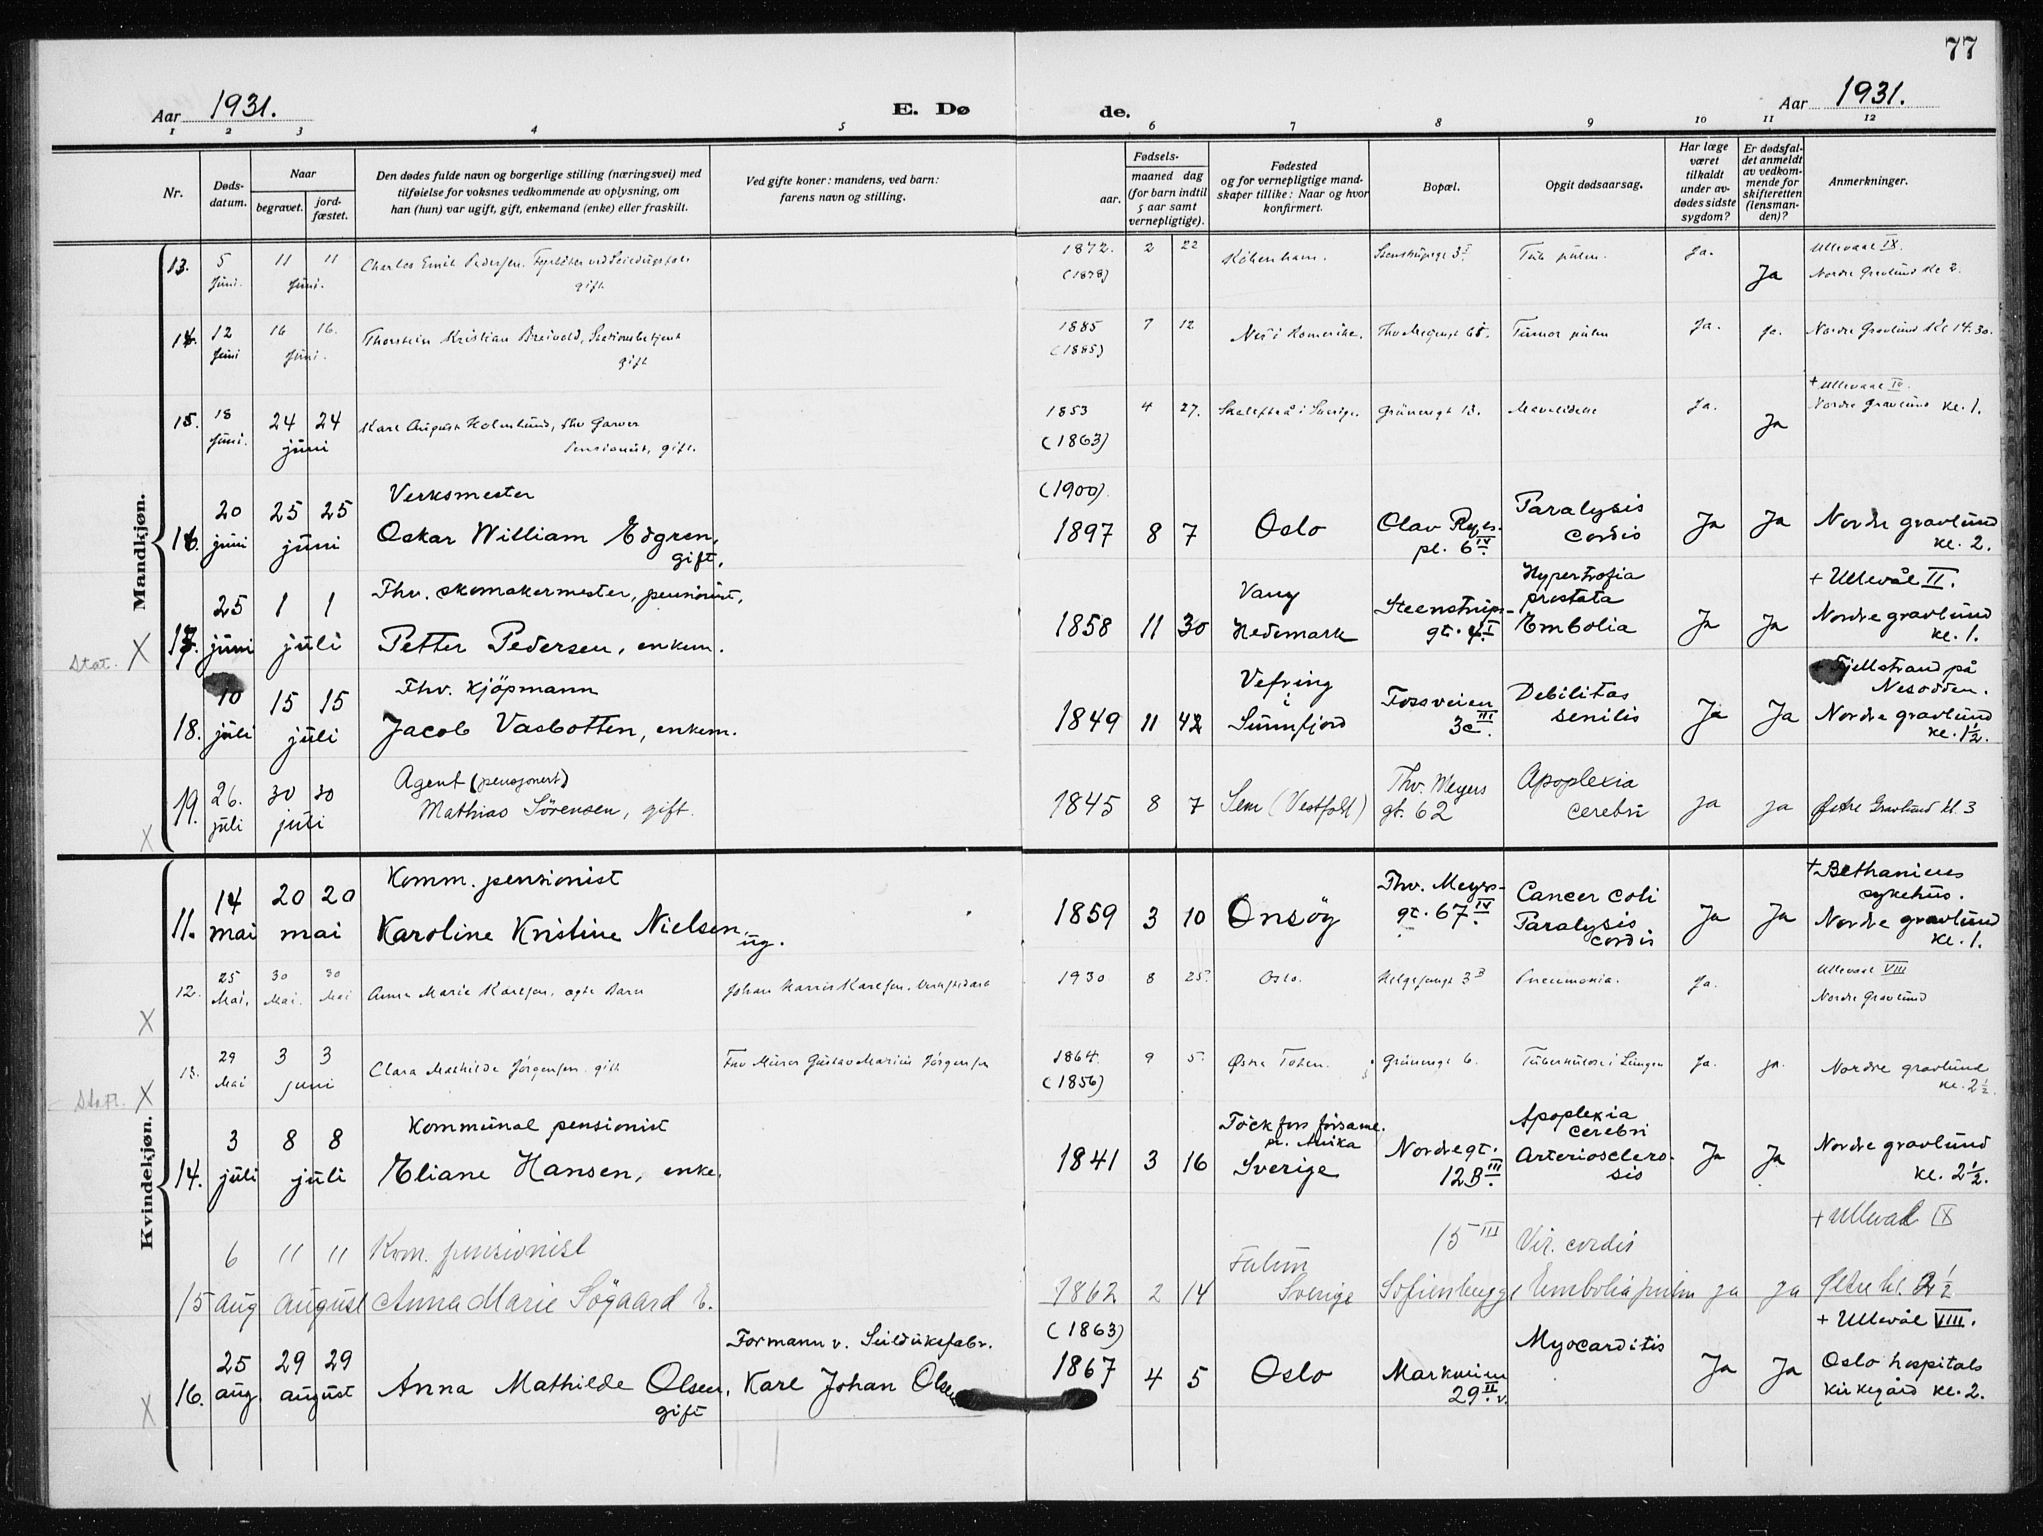 77
Aar 1931.
E. Døde.
Aar 1931.
1 2 3 4 5 6 7 8 9 10 11 12
Nr.
Døds-datum.
Naar
begravet.
jord-fæstet.
Den dødes fulde navn og borgerlige stilling (næringsvei) med
tilføielse for voksnes vedkommende av oplysning, om
han (hun) var ugift, gift, enkemand (enke) eller fraskilt.
Ved gifte koner: mandens, ved barn:
farens navn og stilling.
Fødsels-
aar.
maaned dag
(for barn indtil
5 aar samt
vernepligtige).
Fødested
og for vernepligtige mand-
skaper tillike: Naar og hvor
konfirmert.
Bopæl.
Opgit dødsaarsag.
Har læge
været
tilkaldt
under av-
dødes sidste
sygdom?
Er dødsfal-
det anmeldt
av vedkom-
mende for
skifteretten
(lensman-
den)?
Anmerkninger.
Mandkjøn.
13. 5 Juni. 11 11 Juni. Charles Emil Pedersen. gift 1872. (1878) 2 22 København. Tub pulm. Ja. Ja Ullevaal IX. Nordre Gravlund kl 2.
14. 12 Juni 16 16. Juni. Thorstein Kristian Breivold, Stationsbetjent gift 1885 (1885) 7 12 Nes i Romerike. Thv Meyersgt 68. Tumor pulm Ja. Ja. Nordre Gravlund kl 14.30.
15. 18 Juni. 24 24 juni Karl August Holmlund, fhv Garver Pensionist, gift. 1853 (1863) 4 27. Skellefteå i Sverige. Grünersgt 13. Mavelidelse Ja. Ja + Ullevaal IV. Nordre Gravlund kl. 1.
16. 20 juni 25 25 juni Verksmester Oskar William Edgren, gift. (1900) 1897 8 7 Oslo Olav Ryes pl. 6 IV. Paralysis cordis Ja Ja Nordre gravlund kl. 2.
Stat. X 17. 25 juni 1 1 juli Fhv. skomakermester, pensionist, Petter Pedersen, enkem. 1858 11 30 Vang Hedemark Steenstrups- gt. 4 I. Hypertrofia prostata Embolia Ja Ja + Ullevål II. Nordre gravlund kl. 1.
18. 10 juli 15 15 juli Fhv. kjöpmann Jacob Vasbotten, enkem. 1849 11 42 Vefring i Sunnfjord Fossveien 3c III. Debilitas senilis Ja Ja Fjellstrand på Nesodden. Nordre gravlund kl. 1½.
X 19. 26. juli 30 30 juli Agent (pensjonert) Mathias Sörensen, gift. 1845 8 7 Sem (Vestfold) Thv. Meyers gt. 62 Apoplexia cerebri ja ja Østre Gravlund kl. 3
Kvindekjøn.
11. 14 mai 20 20 mai Komm. pensionist Karoline Kristine Nielsen, ug. 1859 3 10 Onsöy Thv. Meyers- gt. 67 IV. Cancer coli Paralysis cordis Ja Ja + Bethaniens sykehus. Nordre gravlund kl. 1.
X 12. 25 Mai. 30 Mai. 30 Mai Anna Marie Karlsen, ægte Barn Johan Harris Karlsen, 1930 8 25. Oslo. Helgesensgt 3 B Pneumonia. Ja. Ullevaal VIII Nordre Gravlund
X 13. 29 Mai 3 3 juni Clara Mathilde Jörgensen. gift Fhv Murer Gustav Marius Jörgensen 1864. (1856) 9 5. Østre Toten. Grünersgt 6. Tuberkulose i Lungen Ja. ja. Nordre gravlund kl. 2½
14. 3 juli 8 8 juli Kommunal pensionist Eliane Hansen, enke. 1841 3 16 Töckfors församl. pr. Arvika Sverige Nordregt. 12B III. Apoplexia cerebri Arteriosclero- sis Ja Ja Nordre gravlund kl. 2½.
15 6 aug 11 11 august Kom. pensionist Anna Marie Sögaard E. 1862 2 14 Falun Sverige 15 III Sofienberggt Vit. cordis Embolia pulm ja ja + Ullevål IX Østre kl. 2½
X 16. 25 aug. 29 29 august Anna Mathilde Olsen, gift Formann v. Seilduksfabr. Karl Johan Olsen (1863) 1867 4 5 Oslo Markveien 29 II v. Myocarditis Ja Ja + Ullevål VIII. Oslo hospitals kirkegård kl. 2.